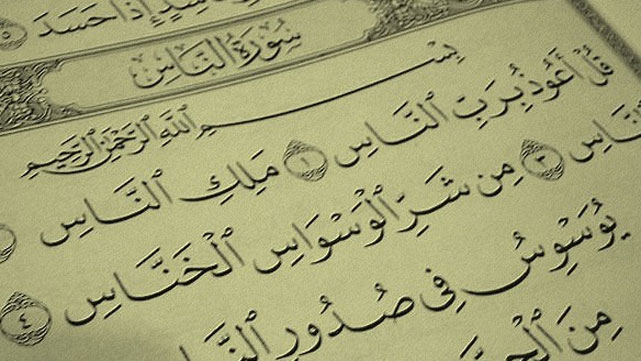 حَاسِدٍ إِذَا حَسَدَ ٥
سُورَةُ النَّاسِ
بِسْمِ اللَّهِ الرَّحْمَٰنِ الرَّحِيمِ
قُلْ أَعُوذُ بِرَبِّ النَّاسِ ١ مَلِكِ النَّاسِ
النَّاسِ ٣ مِن شَرِّ الْوَسْوَاسِ الْخَنَّاسِ ٤
يُوَسْوِسُ فِي صُدُورِ
مِنَ